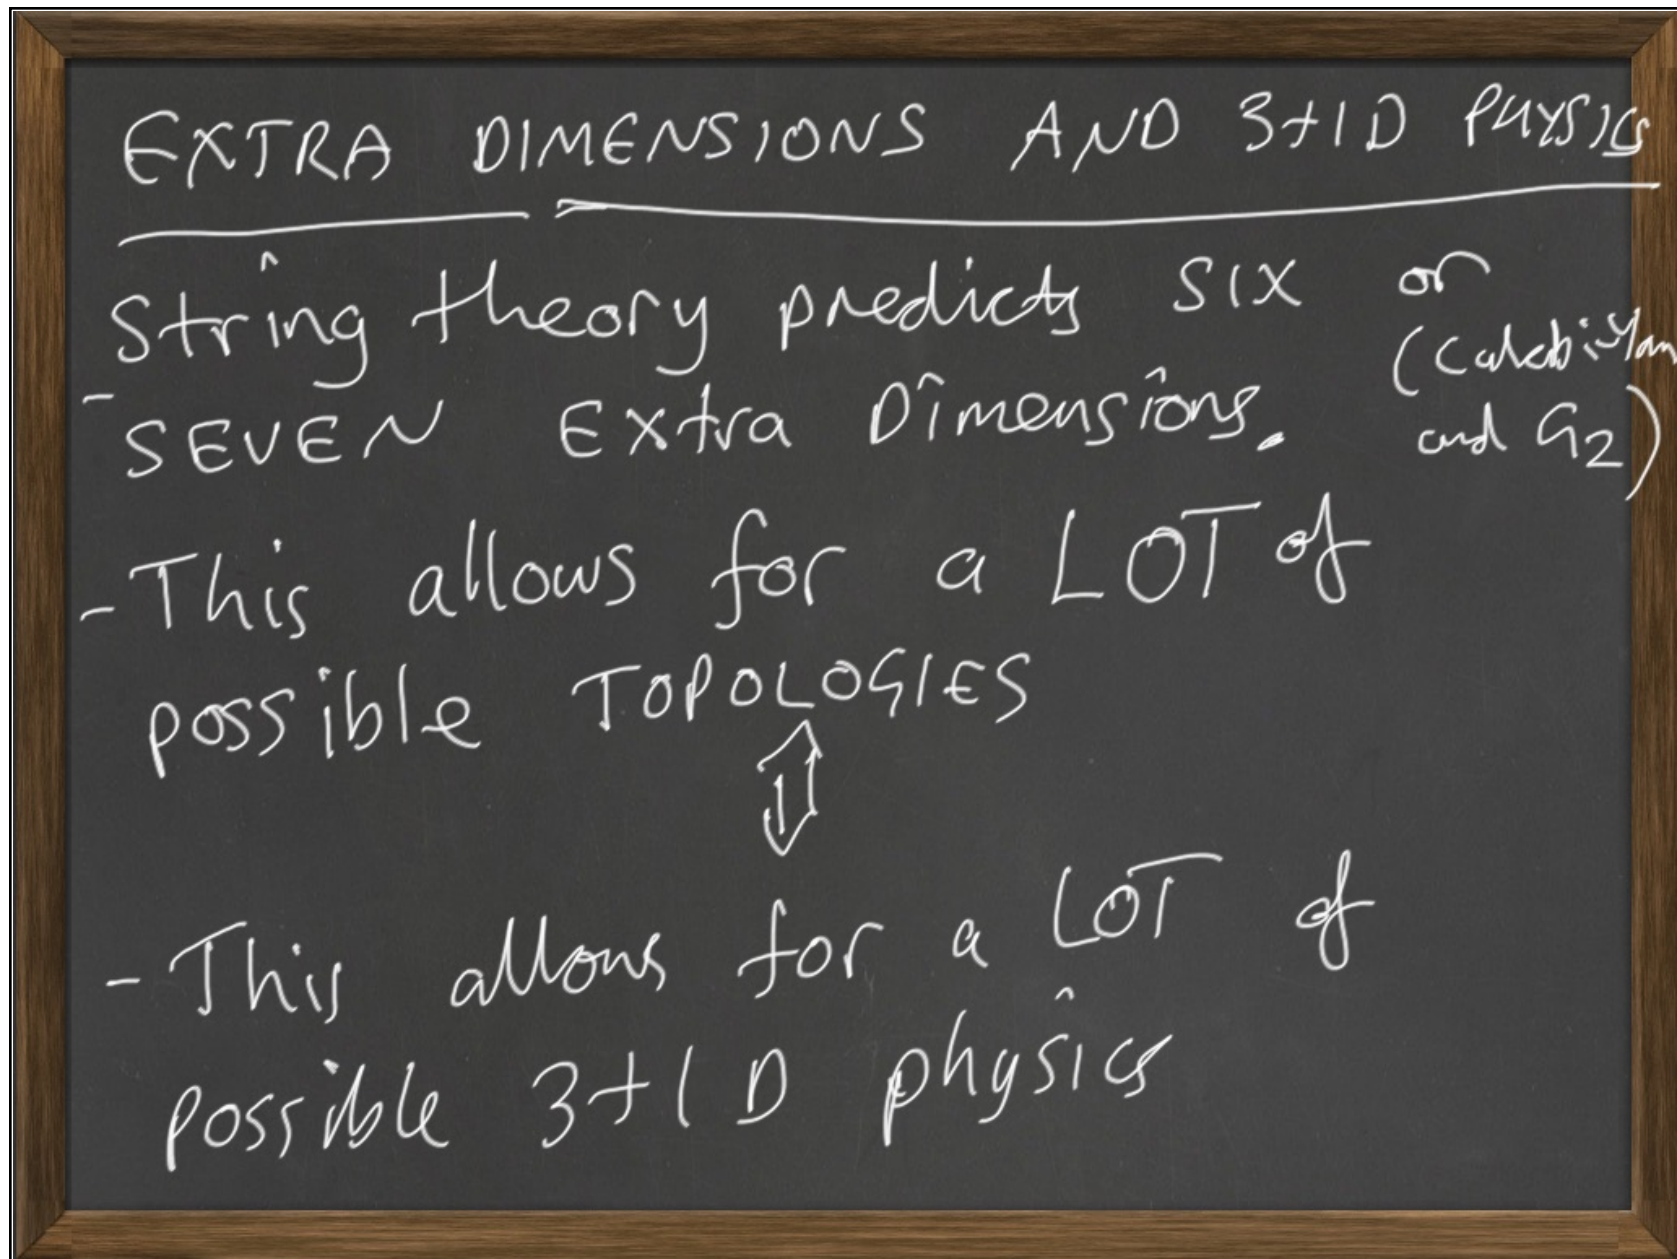 EXTRA DIMENSIONS AND 3+1D PHYSICS
String theory predicts SIX or
(Calabi-Yau
- SEVEN Extra Dimensions.
and G2)
- This allows for a LOT of
possible TOPOLOGIES
- This allows for a LOT of
possible 3+1D physics